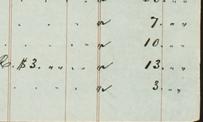 " 7. " "
" 10. " "
$3. " " " 13. " "
" 3. " "